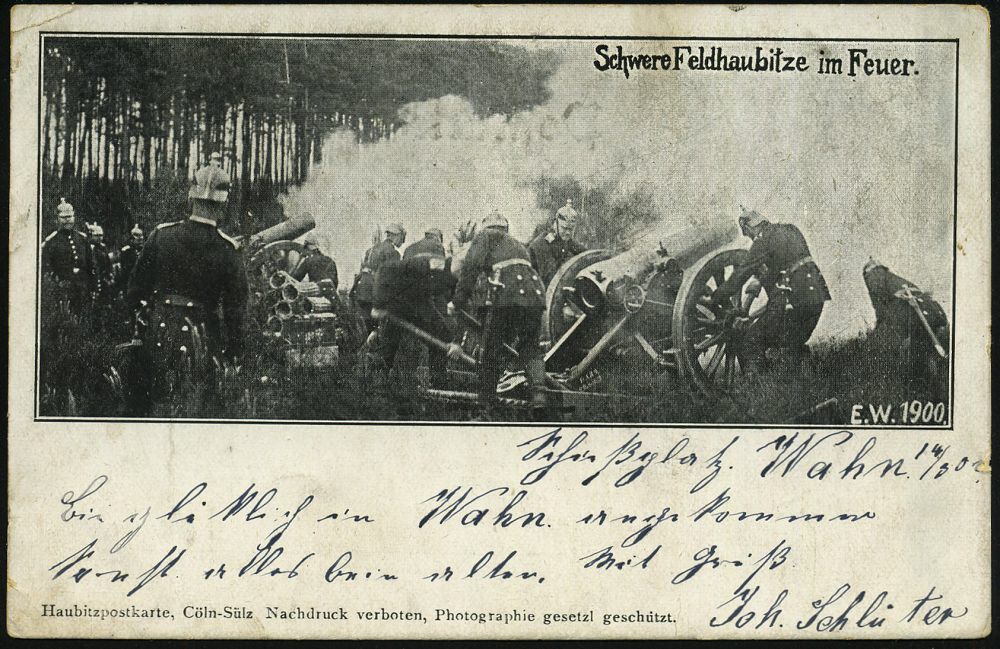 Schwere Feldhaubitze im Feuer.
E.W. 1900.
Schießplatz. Wahn.
Bin glücklich in Wahn. angekommen
Sonst. alles beim alten. Mit Gruß.
Joh. Schlüter
Haubitzpostkarte, Cöln-Sülz Nachdruck verboten, Photographie gesetzl geschützt.